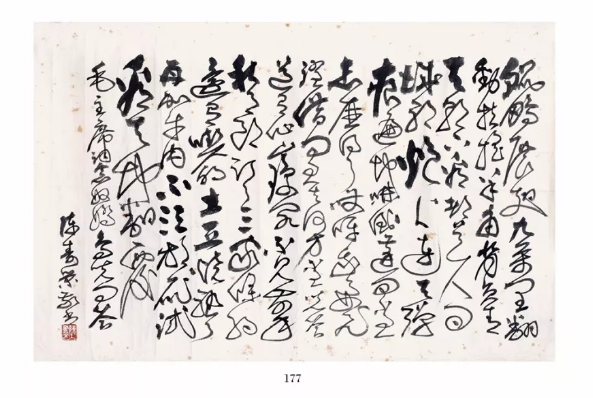 鲲鹏展翅九万里翻
动扶摇羊角背负青
天朝下看都是人间
城郭炮火连天弹
痕遍地吓倒蓬间雀
怎么得了哎呀我要飞
跃借问君去何方雀儿答
道有仙山琼阁不见前年
秋月朗订了三家条约
还有吃的土豆烧熟了
再加牛肉不须放屁试
看天地翻覆
毛主席词念奴娇鸟儿问答
陈寿荣敬书
177